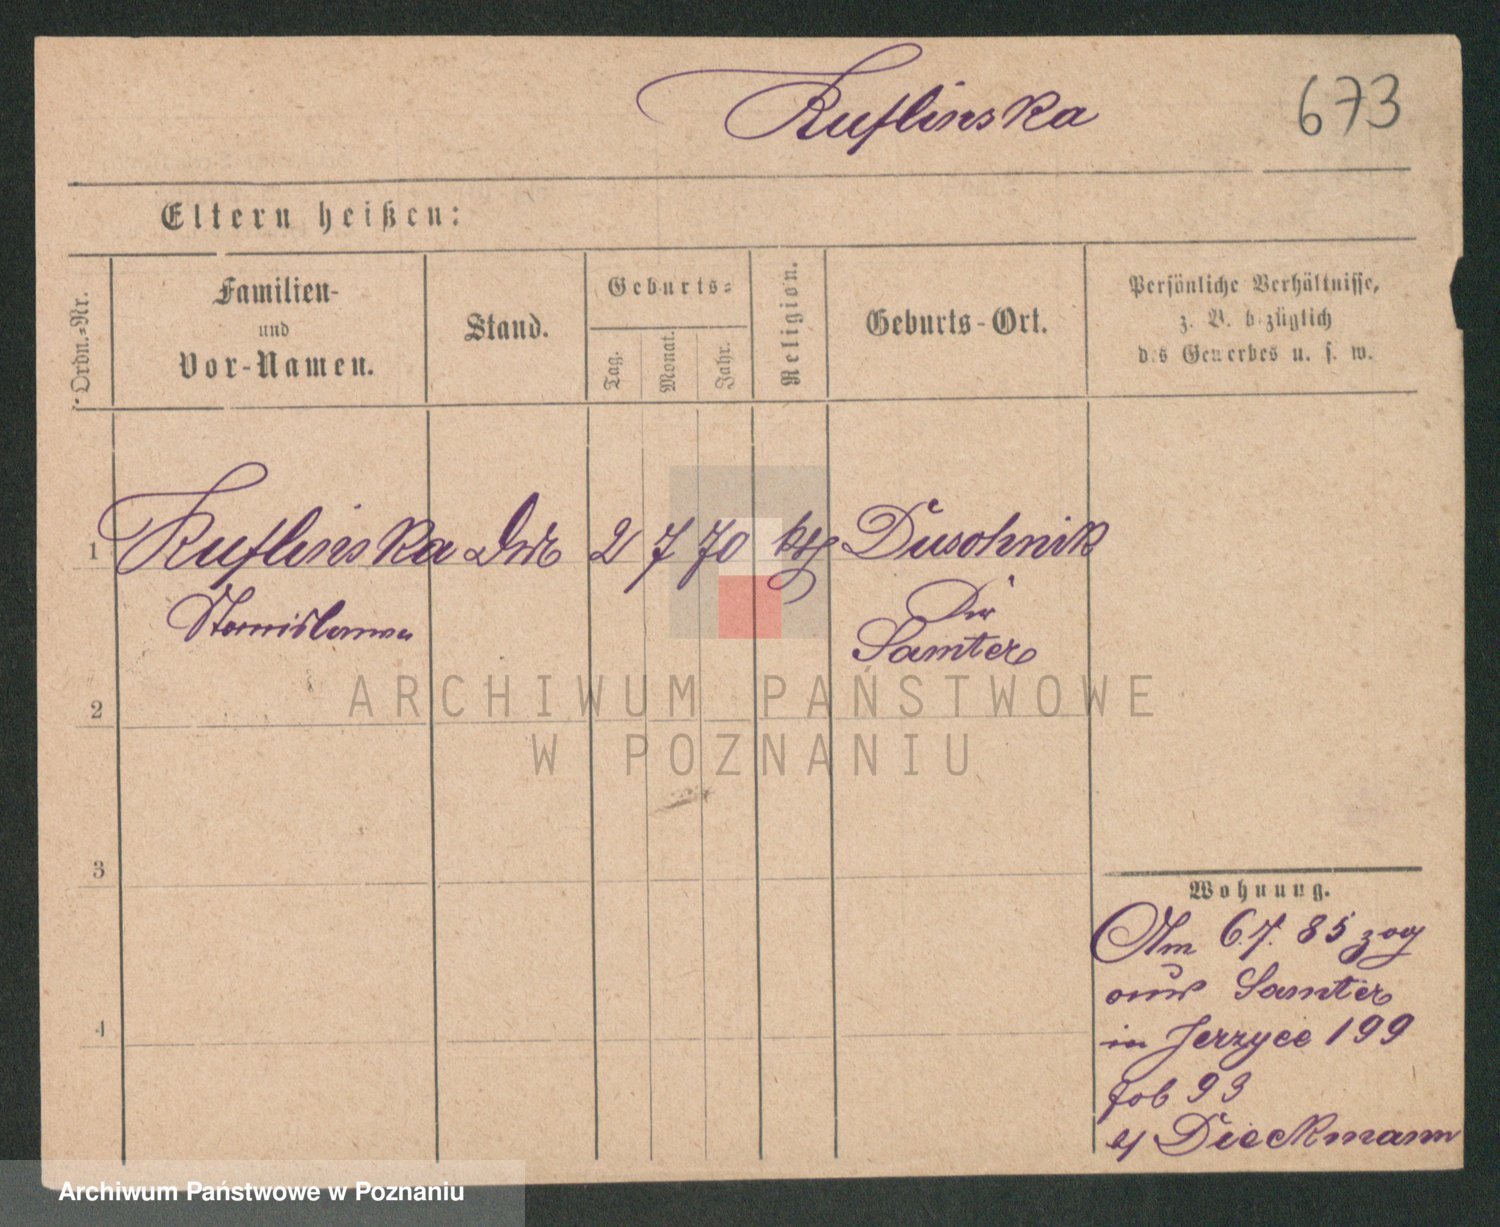 Kuflinska
673
Eltern heißen:
Ordn.-Nr.
Familien-
und
Vor-Namen.
Stand.
Geburts-
Tag.
Monat.
Jahr.
Religion.
Geburts-Ort.
Persönliche Verhältnisse,
z. B. bezüglich
des Gewerbes u. s. w.
1 Kuflinska 2 7 70 kth Duschnik
Stanislawa
Samter
2
ARCHIWUM PAŃSTWOWE
W POZNANIU
3
Wohnung.
Am 6.7. 85 zog
aus Samter
4
in Jerzyce 199
93
Dieckmann
Archiwum Państwowe w Poznaniu